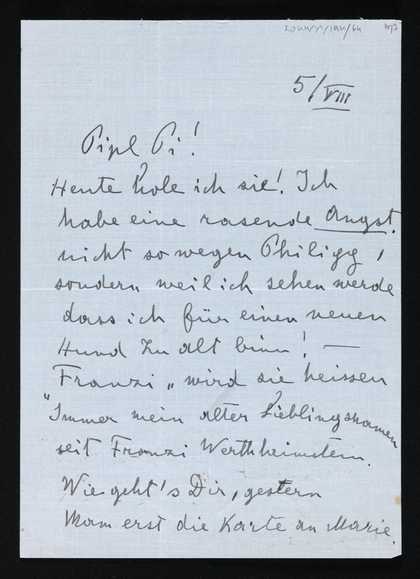 5/VIII
Pipl Pi!
Heute hole ich sie! Ich
habe eine rasende Angst.
nicht so wegen Philipp,
sondern weil ich sehen werde
dass ich für einen neuen
Hund zu alt binn! —
Franzi „ wird sie heissen
"Immer mein alter Lieblingsnamen
seit Franzi Wertheimstein.
Wie geht's Dir, gestern
kam erst die Karte an Marie.